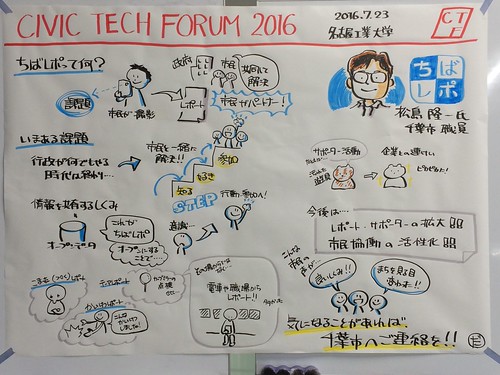 CIVIC TECH FORUM 2016
2016.7.23
名古屋工業大学
CTF
ちばレポって何?
課題
市民が撮影
政府
レポート
市民
共同して
解決
市民サポーター!
ちば
レポ
松島 隆一氏
千葉市 職員
いまある課題
行政が何でもやる
時代は終わり…
市民と一緒に
解決!!
知る
好き
参加
STEP
サポーター活動
企業との連けい
情報を共有するしくみ
オープンデータ
これが
ちばレポ
オープンにする
ことで…
意識…
行動・参加へ!
今後は…
レポート・サポーターの拡大
市民協働の活性化
こまった レポート
かいけつレポート
こんな
かいけつ
しました!
電車や職場から
レポート!!
こんな
市民の
声が…
良いしくみ!!
まちを見る目
変わった!!
気になることがあれば、
千葉市へご連絡を!!